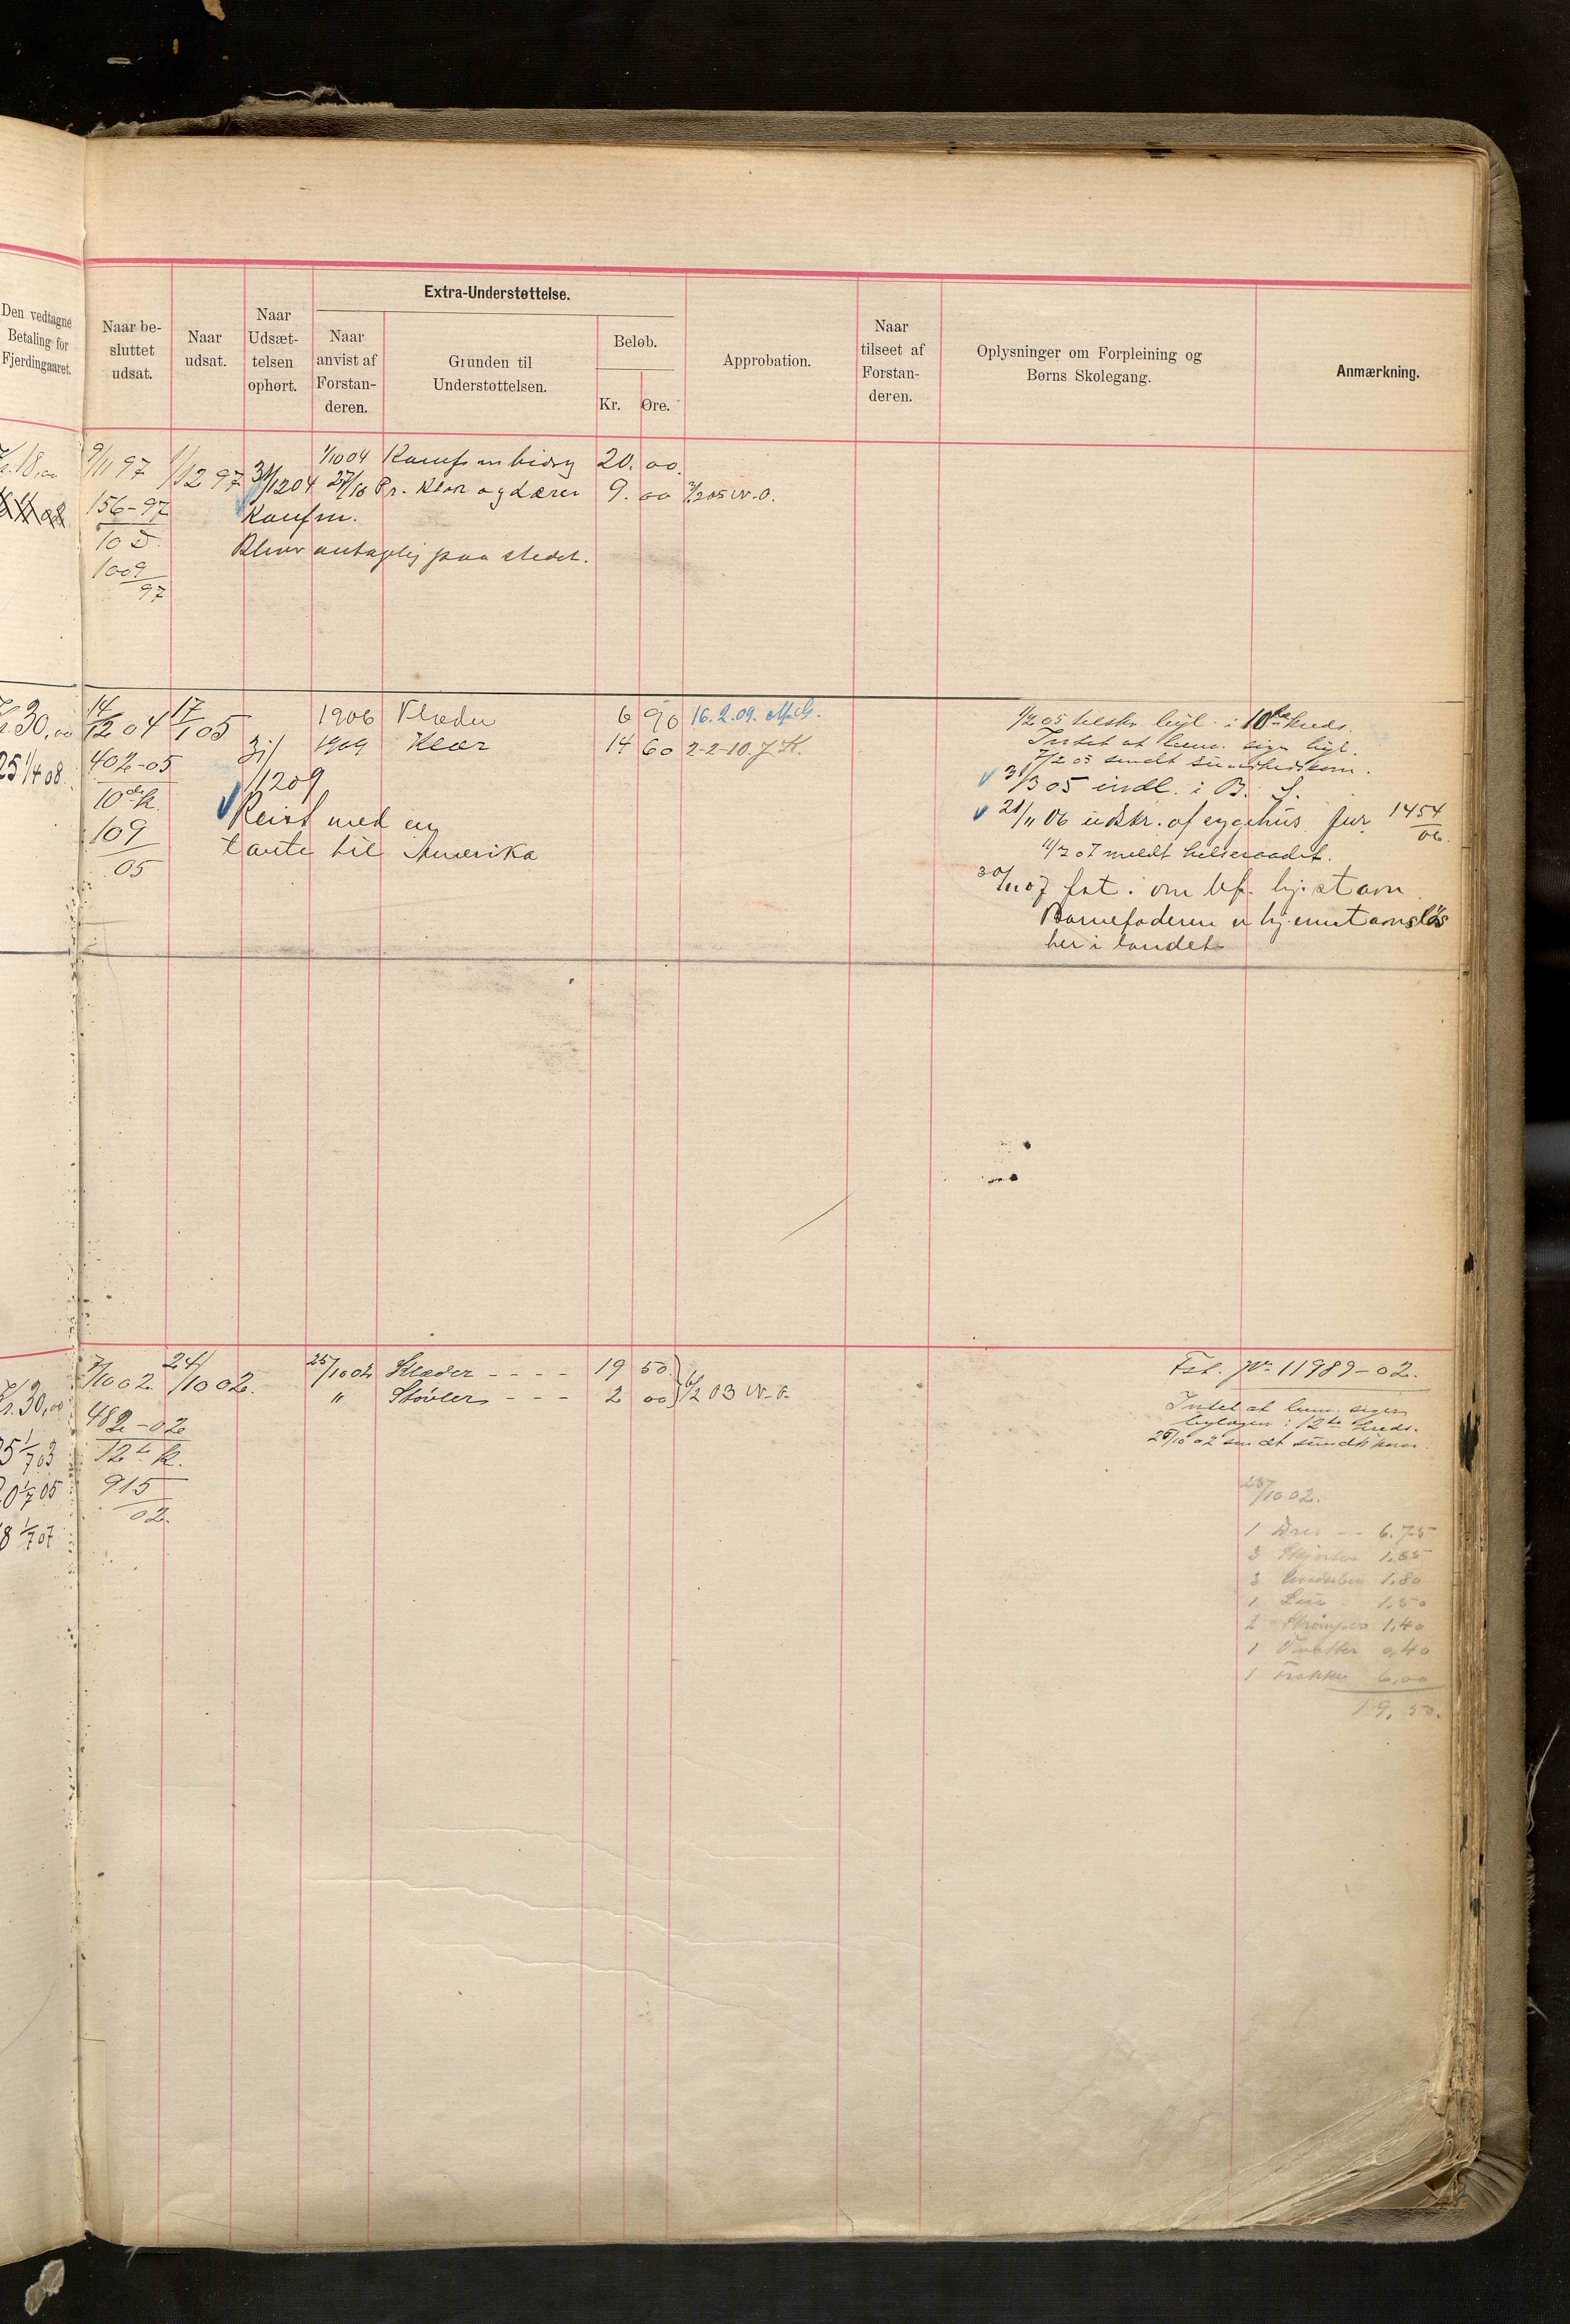 Den vedtagne
Betaling for
Fjerdingaaret.
Naar be-
sluttet
udsat.
Naar
udsat.
Naar
Udsæt-
telsen
ophørt.
Extra-Understøttelse.
Naar
anvist af
Forstan-
deren.
Grunden til
Understøttelsen.
Beløb.
Kr. Øre.
Approbation.
Naar
tilseet af
Forstan-
deren.
Oplysninger om Forpleining og
Børns Skolegang.
Anmærkning.
18,00
9/11 97
1/12 97
31/12 04
1/10 04 Konf. m bidrg 20. 00.
27/10 Pr. Klær og Lærer 9. 00 N. O.
156-97
Konfm.
10
Bliver antagelig paa stedet.
1009
97
30,00
14/12 04
17/1 05
1906 Klæder 6 90 16.2.09.
1909 Klær 14 60 2-2-10. J K.
25 1/4 08.
402-05
31/12 09
10de k.
109
05
Reist med en
tante til Amerika
1/2 05 beskr. bgl. i 10de kreds.
Intet at bem. sign bgl.
7/2 05 sendt sundhedskom.
31/3 05 indl. i B. S.
21/11 06 udskr. af sygehus Jur. 1454/06.
11/7 07 meldt helseraadet.
30/11 07 fat. i om hjstavn
Barnefaderen er hjemstavnsløs
her i landet
7/10 02.
24/10 02.
25/10 02 Klæder - - - - 19 50
" Støvler - - - 2 00 6/2 03 N. O.
30,00
482-02
12te k.
915
02.
25 1/7 03
20 1/7 05
18 1/7 07
Fsk. No 11989-02.
Intet at bem. siger
beglægen i 12te kreds.
25/10 02 sendt sundh kom.
25/10 02.
1 Dres - - 6.75
3 Skjorter 1,65
3 Underben 1,80
1 Lue 1,50
2 Strømper 1,40
1 Vanter 0,40
1 Frakke 6,00
19,50.